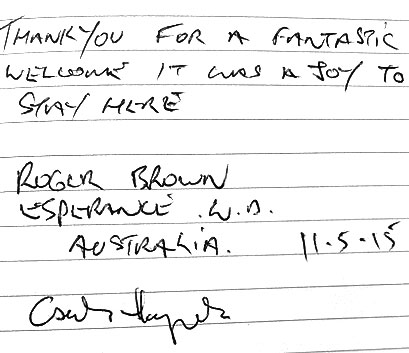 THANKYOU FOR A FANTASTIC
WELCOME IT WAS A JOY TO
STAY HERE
ROGER BROWN
ESPERANCE. W.A.
AUSTRALIA. 11.5.15